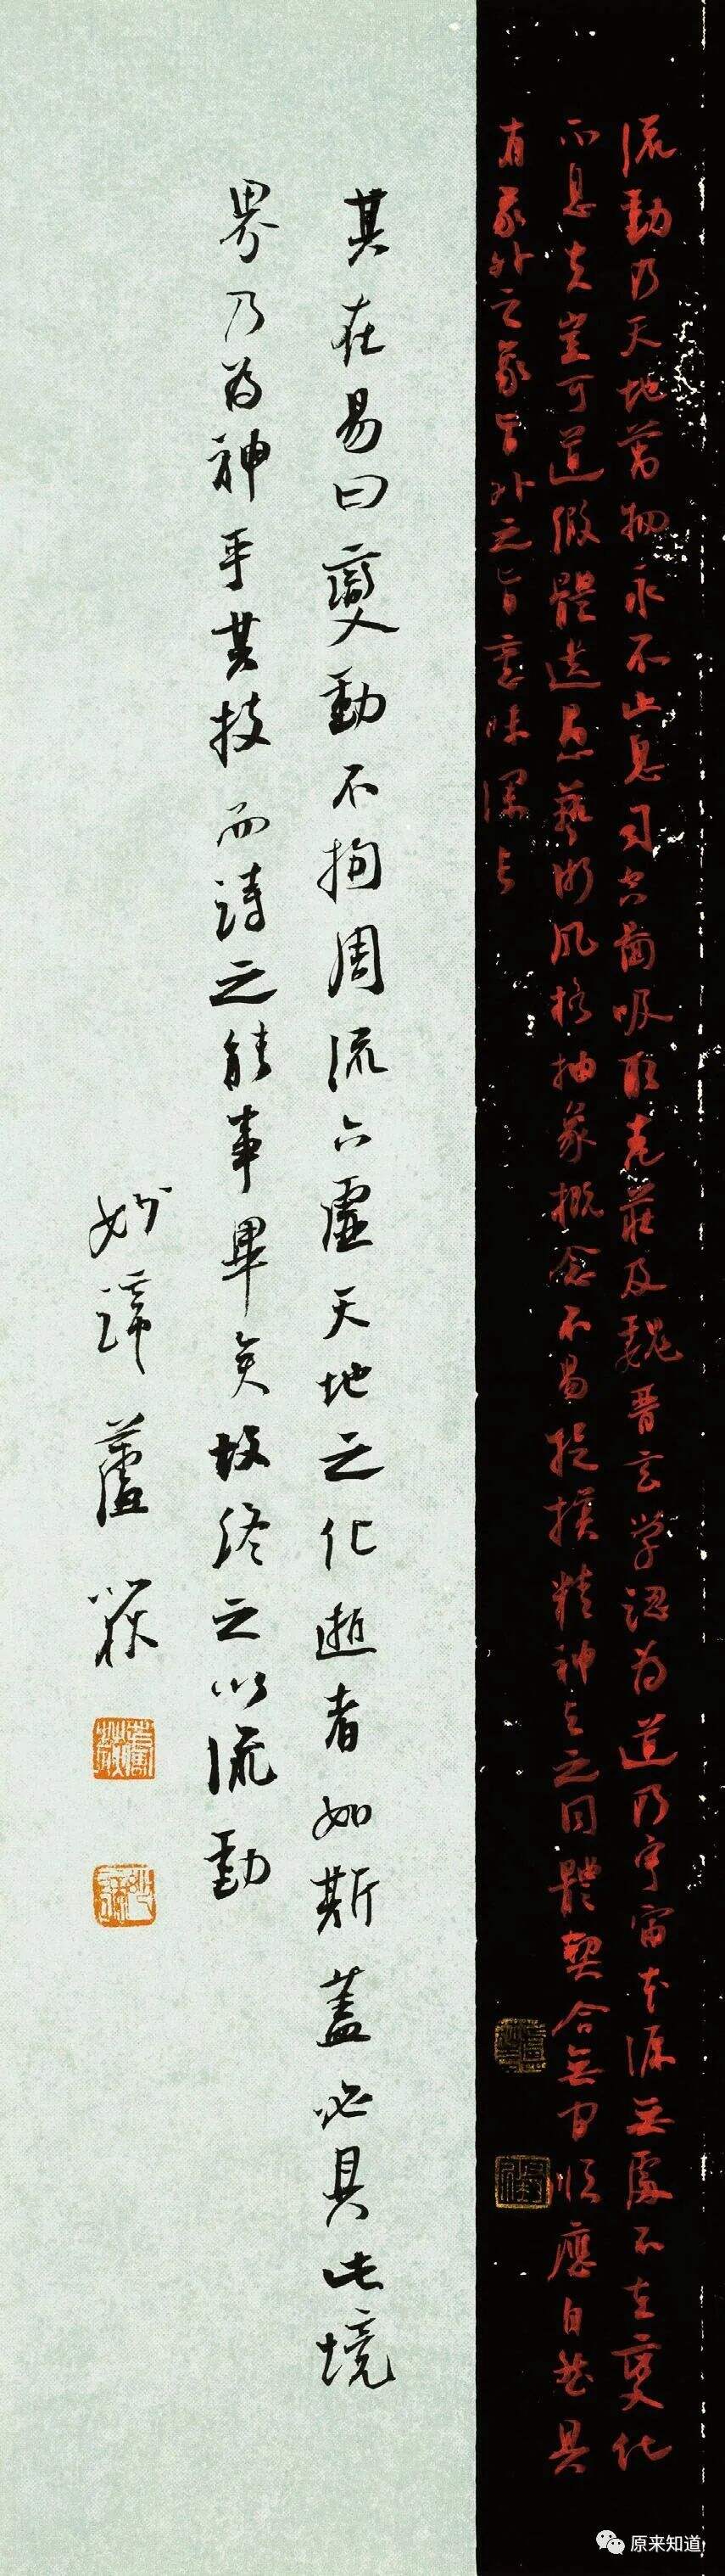 流動乃天地萬物永不止息司空圖吸取老莊及魏晋玄学認为道乃宇宙本源無處不在變化
不息夫豈可道假體遺愚藝術风格抽象概念不易捉摸精神与之同體契合無间順應自然具
有象外之象旨外之旨意味深长
其在易曰變動不拘周流六虛天地之化逝者如斯蓋必具此境
界乃為神乎其技而詩之能事畢矣故終之以流動
妙諦蘆荻
原来知道